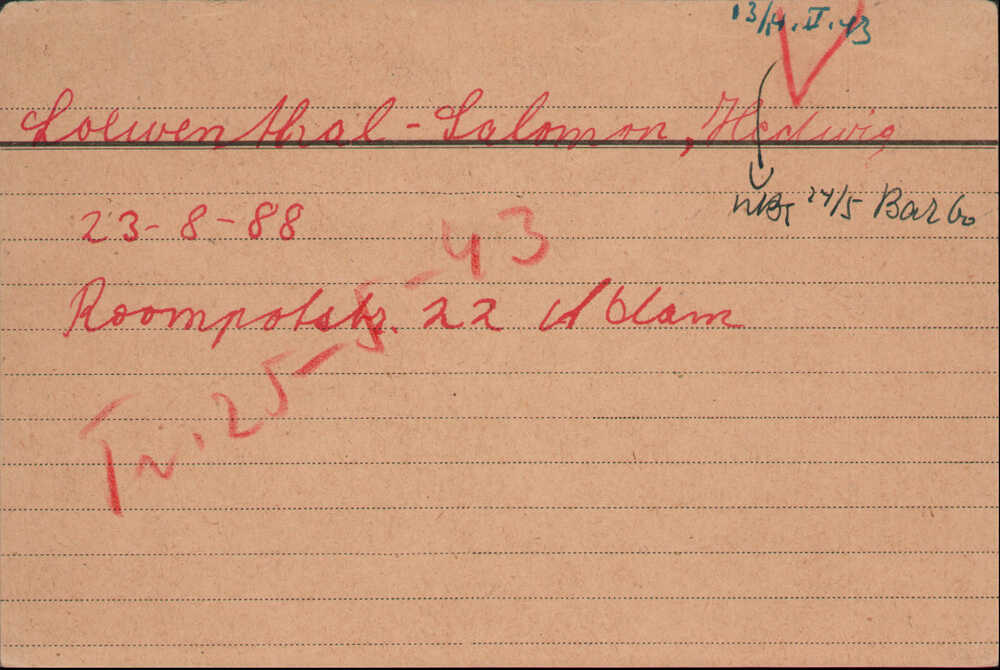 13/14.II.43
Loewenthal-Salomon, Hedwig
24/5 Bar 60
23-8-88
Roompotstr. 22 A'dam
Tr. 25-5-43